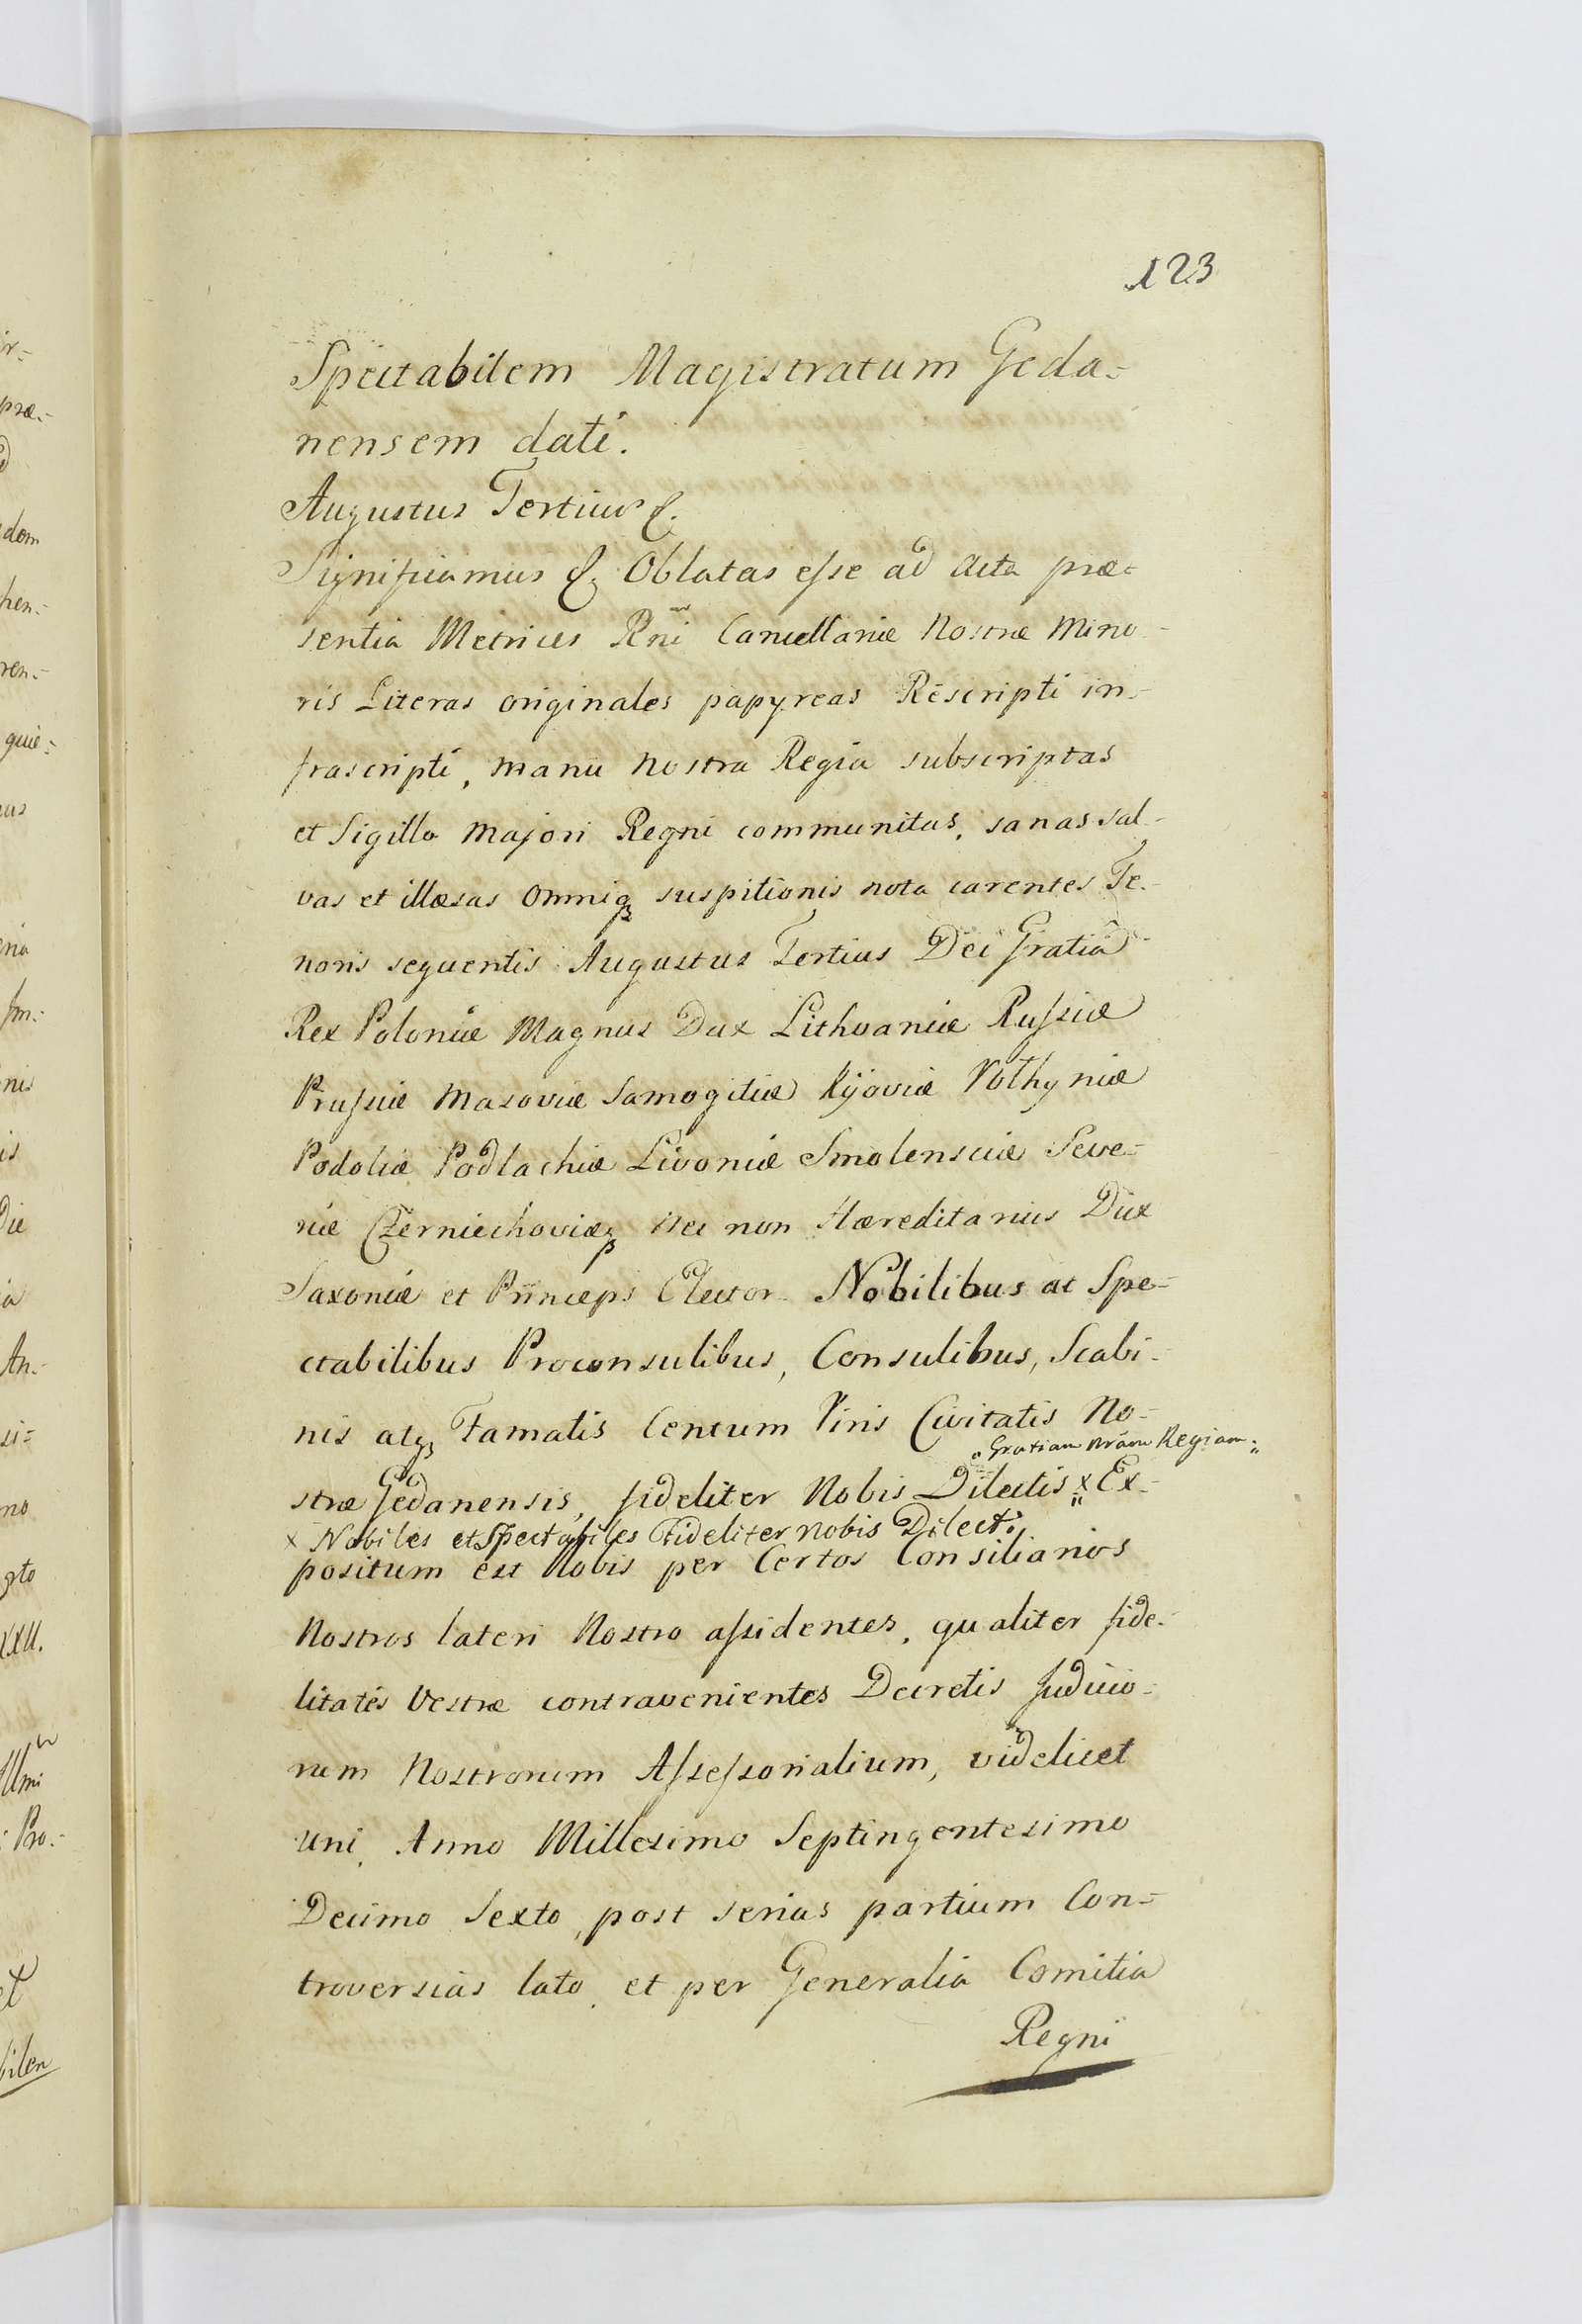 123
Spectabilem Magistratum Geda-
nensem dati.
Augustus Tertius &.
Significamus &. Oblatas esse ad Acta præ-
sentia Metrices Rñi Cancellariæ Nostræ Mino-
ris Literas originales papyreas Rescripti in-
frascripti, manu Nostra Regia subscriptas
et Sigillo Majori Regni communitas, sanas sal-
vas et illæsas omniq suspitionis nota carentes Te-
noris sequentis. Augustus Tertius Dei Gratia
Rex Poloniæ Magnus Dux Lithvaniæ Russiæ
Prussiæ Masoviæ Samogitiæ Kijoviæ Volhyniæ
Podoliæ Podlachiæ Livoniæ Smolensciæ Seve-
riæ Czerniechoviæq nec non Hæreditarius Dux
Saxoniæ et Princeps Elector. Nobilibus ac Spe-
ctabilibus Proconsulibus, Consulibus, Scabi-
nis atq Famatis Centum Viris Civitatis No-
Gratiam nrãm Regiam.
stræ Gedanensis, fideliter Nobis Dilectis x Ex-
x Nobiles et Spectabiles Fideliter nobis Dilecti
positum est Nobis per Certos Consiliarios
Nostros lateri Nostro assidentes, qualiter fide-
litates Vestræ contravenientes Decretis Judicio-
rum Nostrorum Assessorialium, videlicet
uni, Anno Millesimo Septingentesimo
Decimo Sexto, post serias partium Con-
troversias lato, et per Generalia Comitia
Regni